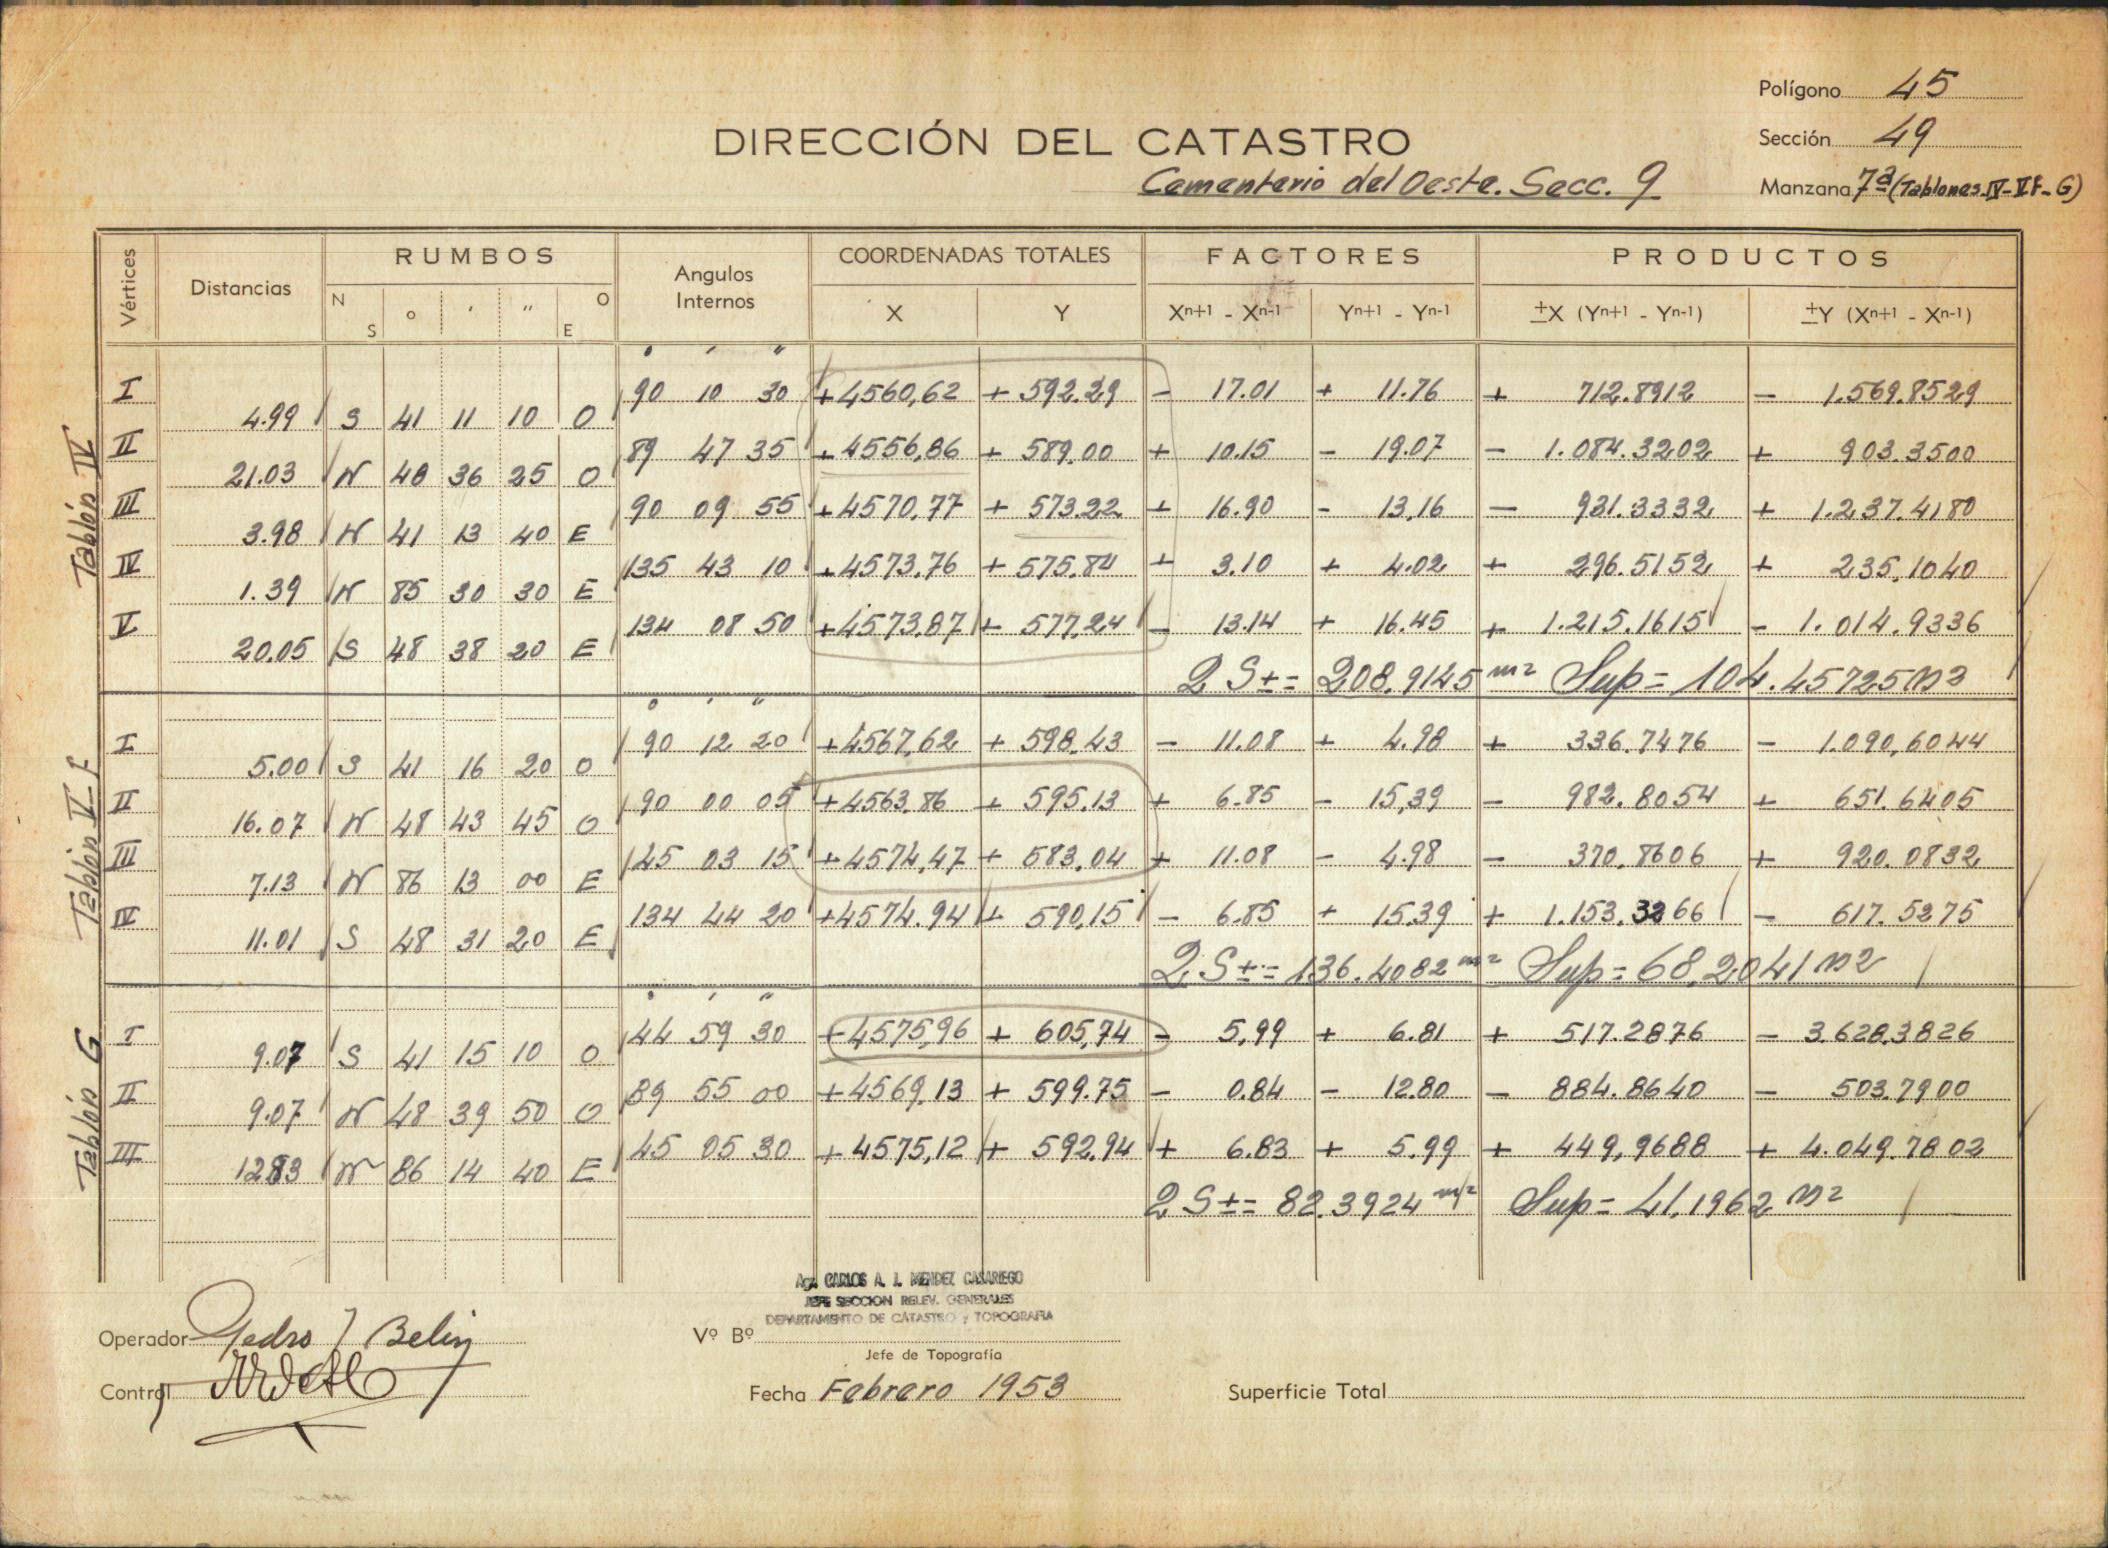 Polígono 45
DIRECCIÓN DEL CATASTRO
Sección 49
Cementerio del Oeste. Secc. 9
Manzana 7ª (Tablones IV-V F-G)
Vértices Distancias RUMBOS Angulos Internos COORDENADAS TOTALES FACTORES PRODUCTOS
N S º ' " O E X Y Xⁿ⁺¹ - Xⁿ⁻¹ Yⁿ⁺¹ - Yⁿ⁻¹ ±X (Yⁿ⁺¹ - Yⁿ⁻¹) ±Y (Xⁿ⁺¹ - Xⁿ⁻¹)
Tablón IV
° ' "
I 90 10 30 +4560,62 + 592.29 - 17.01 + 11.76 + 712.8912 - 1.569.8529
4.99 S 41 11 10 O
II 89 47 35 +4556,86 + 589.00 + 10.15 - 19.07 - 1.084.3202 + 903.3500
21.03 N 48 36 25 O
III 90 09 55 +4570,77 + 573.22 + 16.90 - 13,16 - 931.3332 + 1.237.4180
3.98 N 41 13 40 E
IV 135 43 10 +4573,76 + 575.84 + 3.10 + 4.02 + 296.5152 + 235,1040
1.39 N 85 30 30 E
V 134 08 50 +4573,87 + 577,24 - 13.14 + 16.45 + 1.215.1615 - 1.014.9336
20.05 S 48 38 20 E
2 S ± = 208.9145 m² Sup = 104.45725 m2
Tablón V F
° ' "
I 90 12 20 +4567,62 + 598,43 - 11.08 + 4.98 + 336.7476 - 1.090,6044
5.00 S 41 16 20 O
II 90 00 05 +4563,86 + 595.13 + 6.85 - 15,39 - 982.8054 + 651.6405
16.07 N 48 43 45 O
III 45 03 15 +4574,47 + 583,04 + 11.08 - 4.98 - 370.8606 + 920.0832
7.13 N 86 13 00 E
IV 134 44 20 +4574.94 + 590,15 - 6.85 + 15.39 + 1.153.3266 - 617.5275
11.01 S 48 31 20 E
2 S ± = 136.4082 m² Sup = 68,2041 m2
Tablón G
° ' "
I 44 59 30 +4575,96 + 605,74 - 5,99 + 6.81 + 517.2876 - 3.628.3826
9.07 S 41 15 10 O
II 89 55 00 +4569.13 + 599.75 - 0.84 - 12.80 - 884.8640 - 503.7900
9.07 N 48 39 50 O
III 45 05 30 +4575,12 + 592.94 + 6.83 + 5.99 + 449,9688 + 4.049.7802
12.83 N 86 14 40 E
2 S ± = 82.3924 m² Sup = 41,1962 m2
Agr. CARLOS A. J. MENDEZ CASARIEGO
JEFE SECCION RELEV. GENERALES
DEPARTAMENTO DE CATASTRO y TOPOGRAFIA
Operador Pedro J Belin
Vº Bº
Jefe de Topografía
Control
Fecha Febrero 1953
Superficie Total